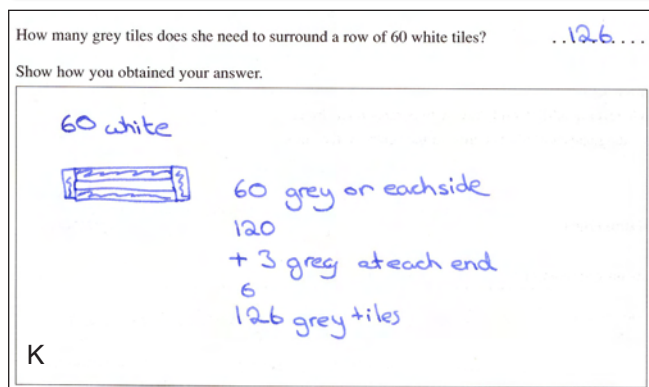 How many grey tiles does she need to surround a row of 60 white tiles? ..126....
Show how you obtained your answer.
60 white
60 grey on each side
120
+ 3 grey at each end
6
126 grey tiles
K